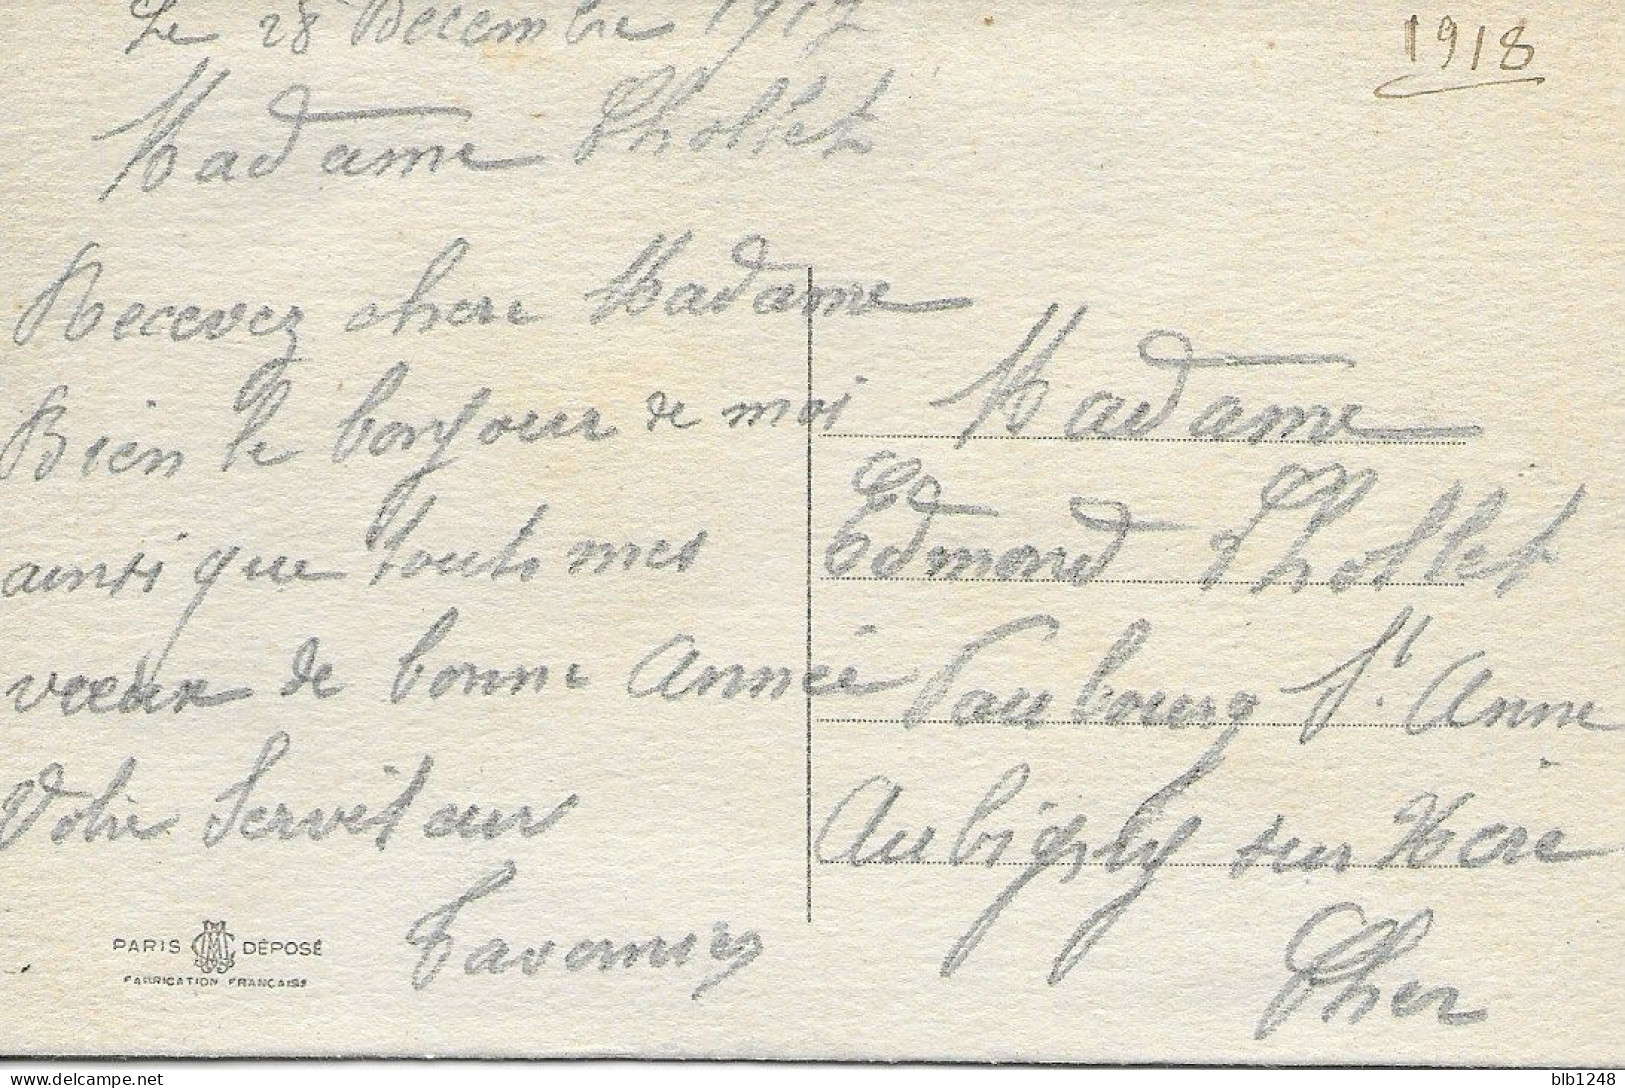 Le 28 Decembre 1917
1918
Madame Chollet
Recevez chere Madame
Bien le bonjour de moi
ainsi que touts mes
voeux de bonne Année
Votre Serviteur
Taverniers
PARIS DÉPOSÉ
FABRICATION FRANÇAISE
Madame
Edmond Chollet
Faubourg St. Anne
Aubigny sur Nere
Cher
delcampe.net
blb1248